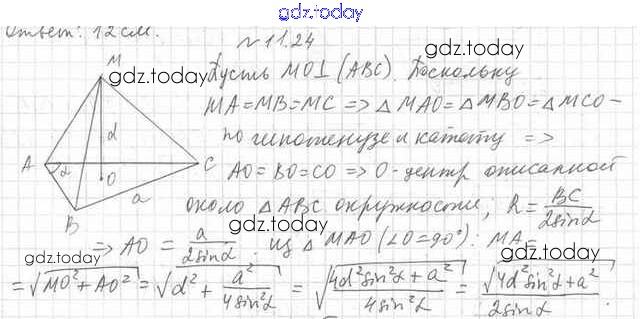 gdz.today
Ответ: 12 см.
№ 11.24
gdz.today
M
gdz.today
Пусть MO⊥(ABC). Поскольку
MA=MB=MC => △MAO=△MBO=△MCO-
d
по гипотенузе и катету =>
A α C
AO=BO=CO => O-центр описанной
O
a
B
около △ABC окружности; R = BC/2sinα
gdz.today
=> AO = a/2sinα. Из △MAO (∠O=90°): MA=
gdz.today
gdz.today
= √(MO²+AO²) = √(d² + a²/4sin²α) = √((4d²sin²α+a²)/4sin²α) = √(4d²sin²α+a²)/2sinα.